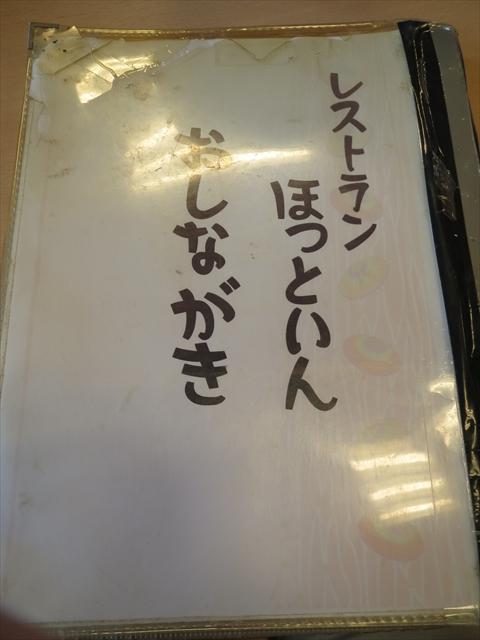 レストラン
ほっといん
おしながき